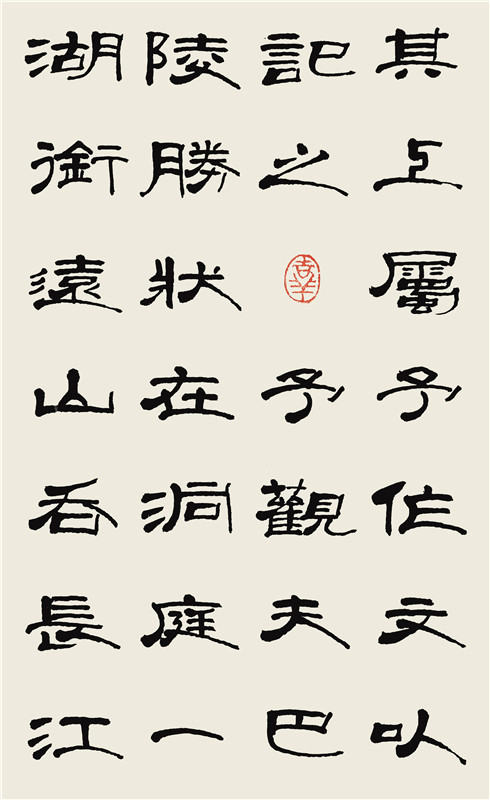 其上屬予作文以
記之予觀夫巴
陵勝狀在洞庭一
湖銜遠山吞長江